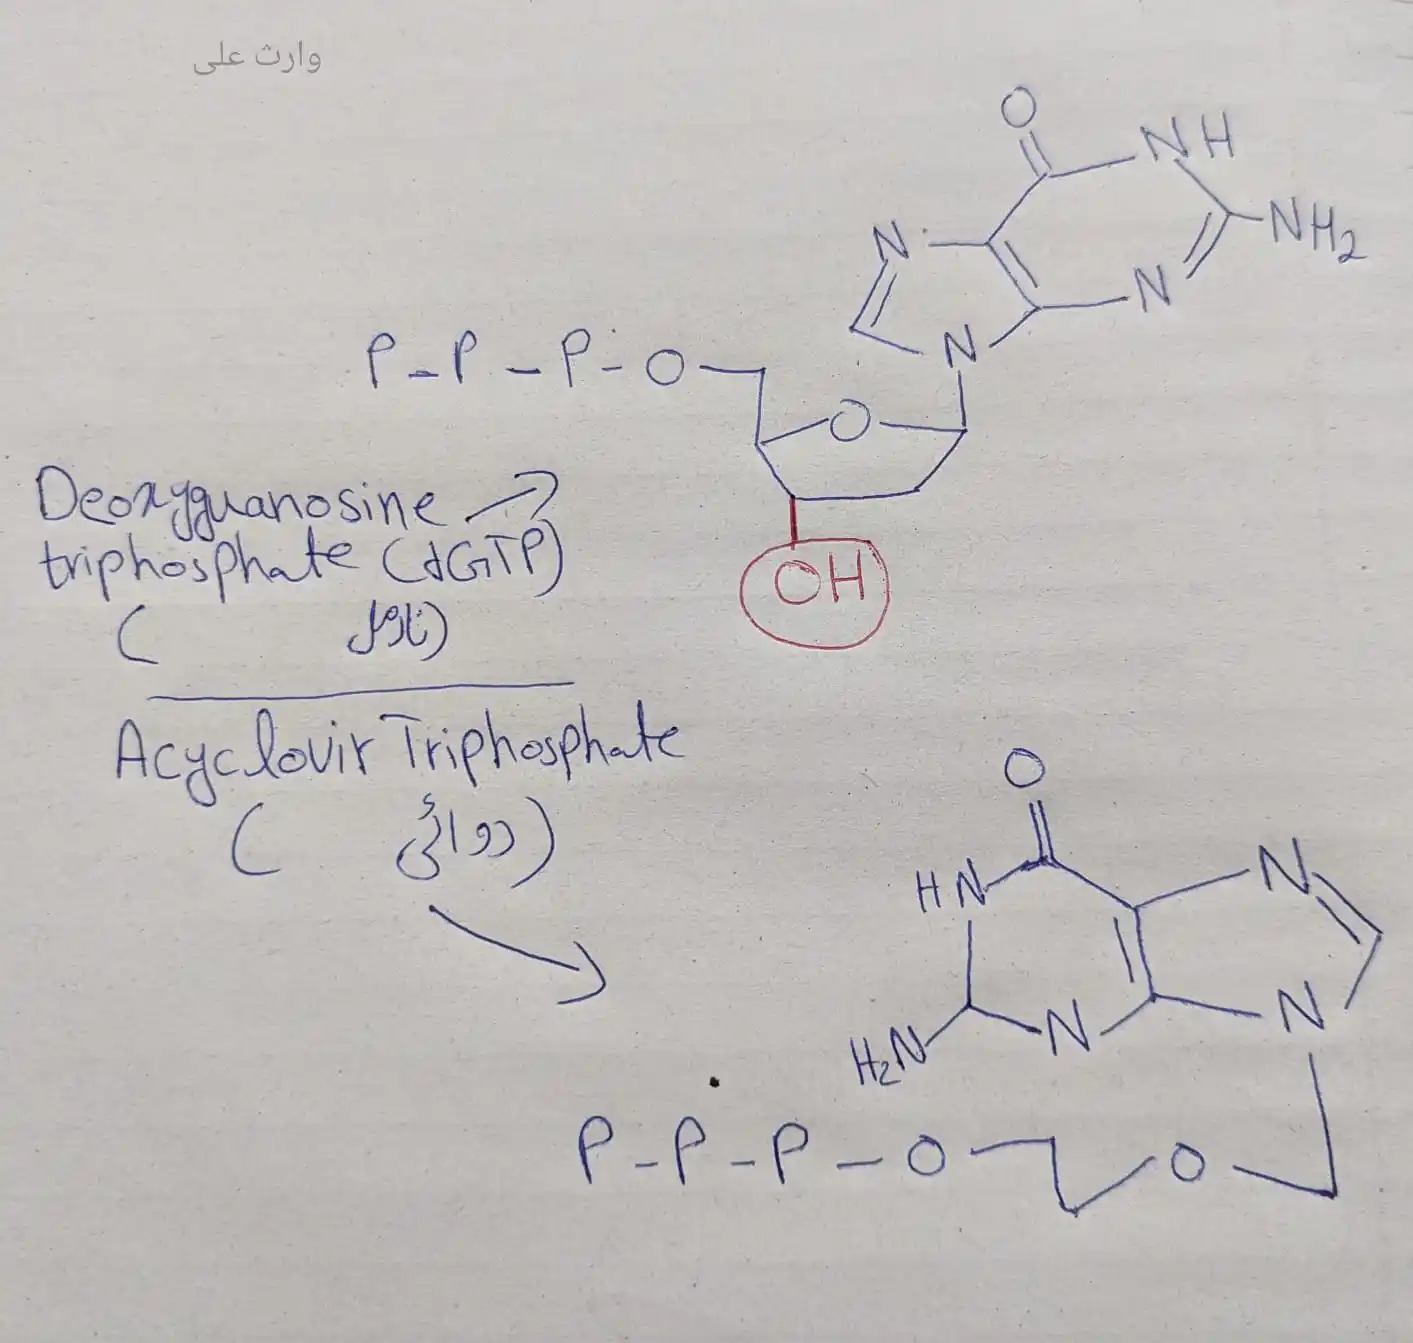 وارث علی
O
NH
N
NH2
N
N
P-P-P-O
O
Deoxyguanosine
triphosphate (dGTP)
OH
(نارمل)
Acyclovir Triphosphate
(دوائی)
O
HN
N
N
N
H2N
P-P-P-O
O